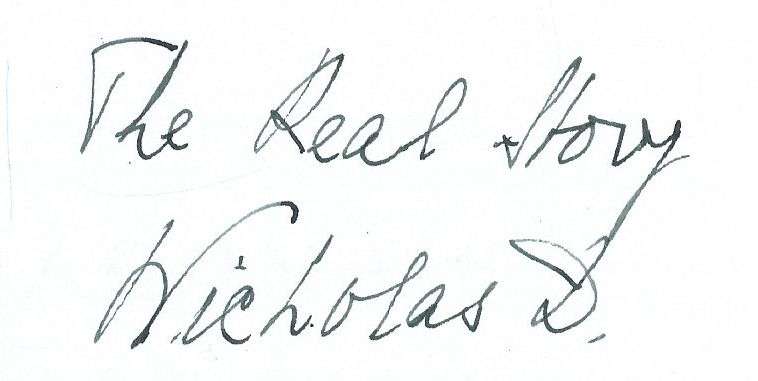 The Real Story
Nicholas D.